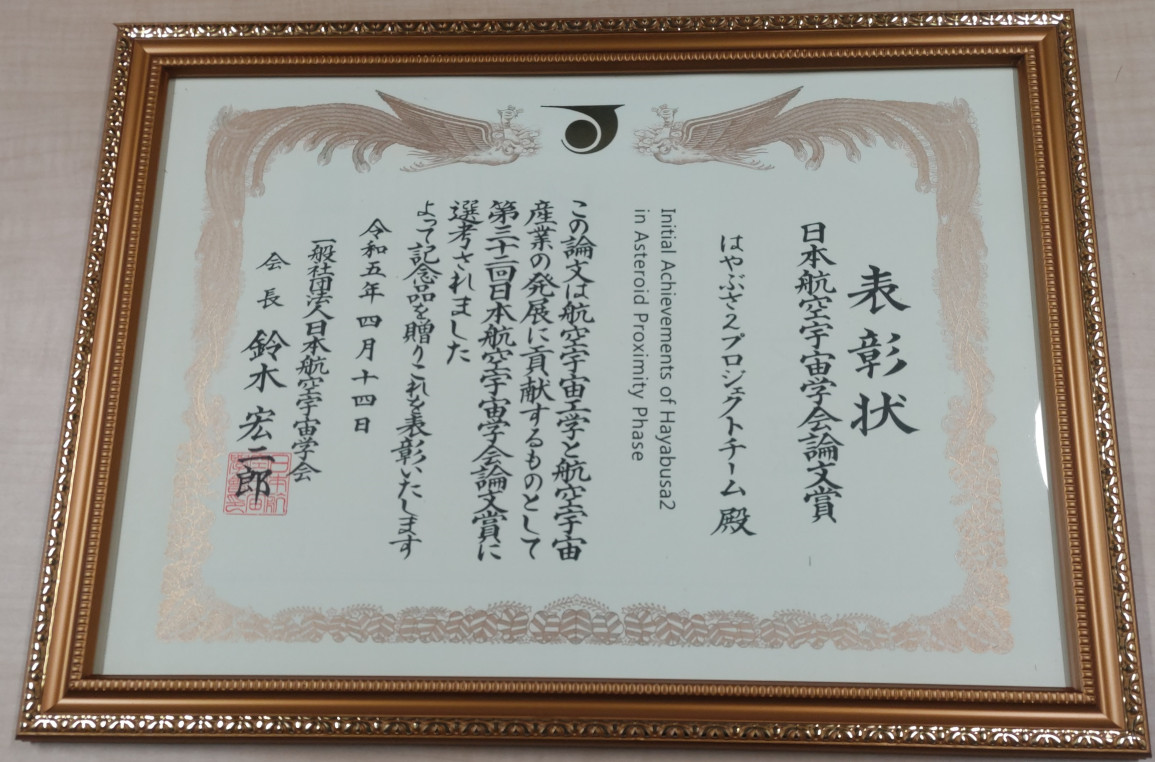 表彰状
日本航空宇宙学会論文賞
はやぶさ2プロジェクトチーム 殿
Initial Achievements of Hayabusa2
in Asteroid Proximity Phase
この論文は航空宇宙工学と航空宇宙
産業の発展に貢献するものとして
第三十二回日本航空宇宙学会論文賞に
選考されました
よって記念品を贈りこれを表彰いたします
令和五年四月十四日
一般社団法人日本航空宇宙学会
会長 鈴木宏二郎